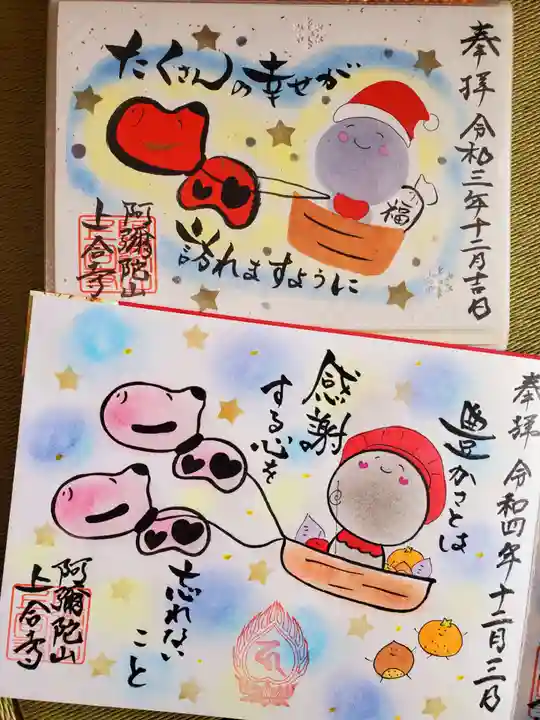 奉拝 令和三年十二月吉日
たくさんの幸せが
訪れますように
福
阿彌陀山
上合寺
奉拝 令和四年十二月三日
豊かさとは
感謝
する心を
忘れない
こと
阿彌陀山
上合寺